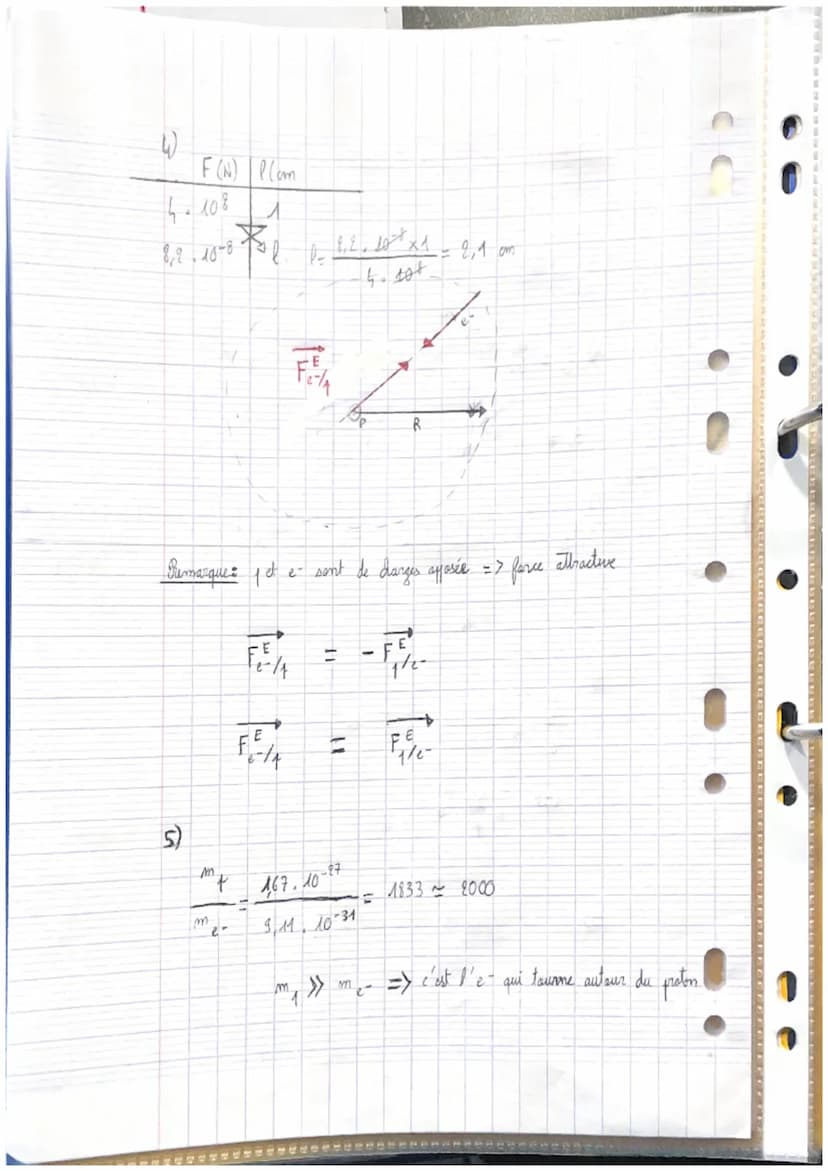 4)
F (N) | l (cm
4 . 10⁸ | 1
8,2 . 10⁻⁸ | l
l = 8,2 . 10⁻⁸ x 1 / 4 . 10⁸ = 2,1 cm
e⁻
F^E e-/p
P
R
Remarque : p et e⁻ sont de charges opposée => force attractive
F^E e-/p = - F^E p/e-
F^E e-/p = F^E p/e-
5)
m p / m e- = 1,67 . 10⁻²⁷ / 9,11 . 10⁻³¹ = 1833 ≃ 2000
m p >> m e- => c'est l'e⁻ qui tourne autour du proton